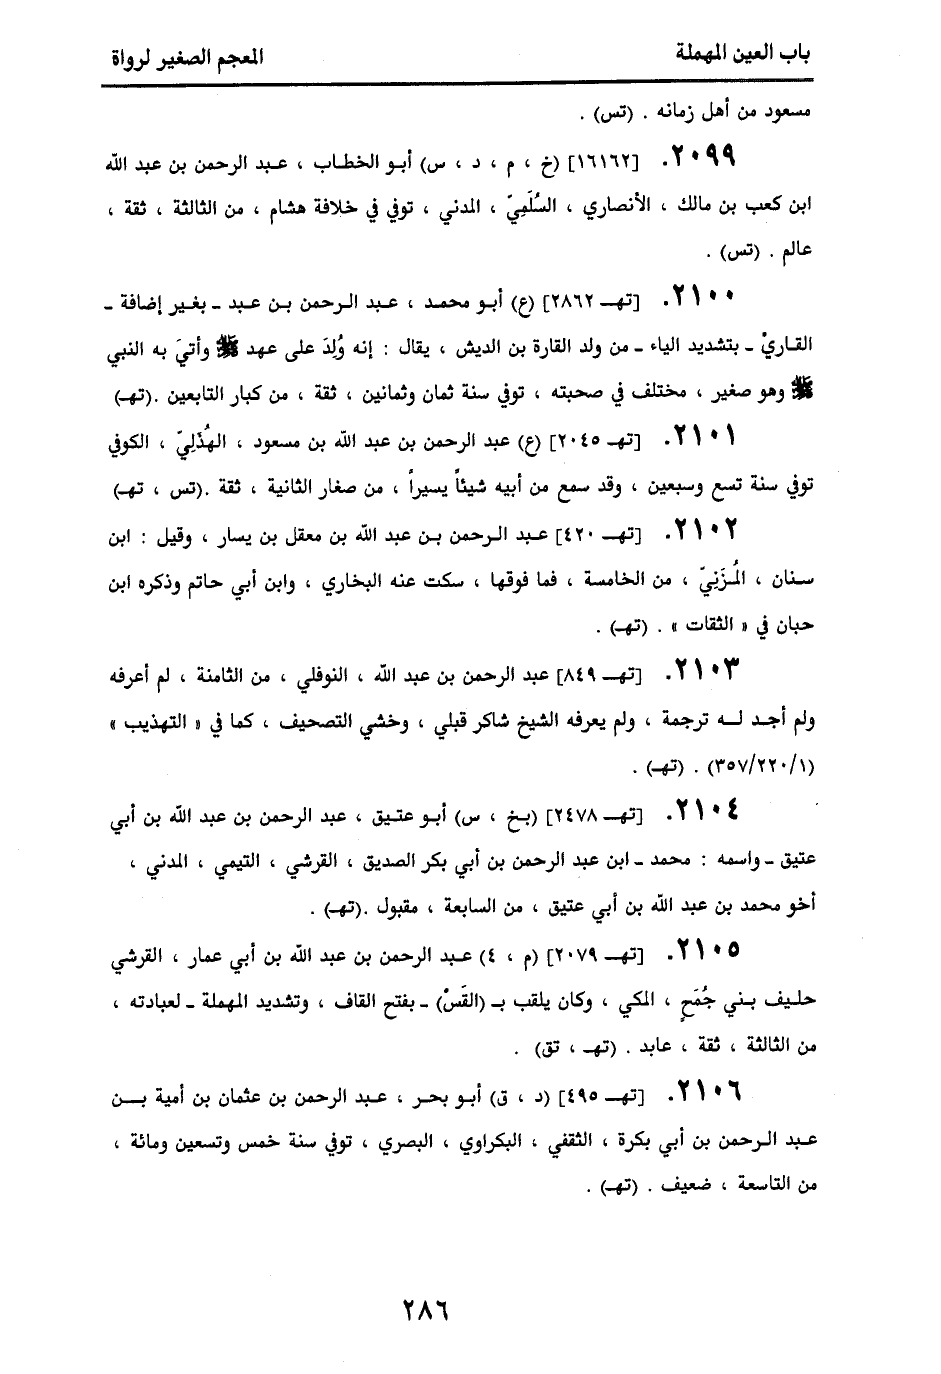 باب العين المهملة
المعجم الصغير لرواة
مسعود من أهل زمانه . (تس) .
٢٠٩٩. [١٦١٦٢] (خ ، م ، د ، س) أبو الخطاب ، عبد الرحمن بن عبد الله
ابن كعب بن مالك ، الأنصاري ، السُلَمِيّ ، المدني ، توفي في خلافة هشام ، من الثالثة ، ثقة ،
عالم . (تس) .
٢١٠٠. [تهـ ٢٨٦٢] (ع) أبو محمد ، عبد الرحمن بن عبد ـ بغير إضافة ـ
القاريْ ـ بتشديد الياء ـ من ولد القارة بن الديش ، يقال : إنه وُلدَ على عهد ﷺ وأتيَ به النبي
ﷺ وهو صغير ، مختلف في صحبته ، توفي سنة ثمان وثمانين ، ثقة ، من كبار التابعين .(تهـ)
٢١٠١. [تهـ ٢٠٤٥] (ع) عبد الرحمن بن عبد الله بن مسعود ، الهُذَلِيّ ، الكوفي
توفي سنة تسع وسبعين ، وقد سمع من أبيه شيئاً يسيراً ، من صغار الثانية ، ثقة .(تس ، تهـ)
٢١٠٢. [تهـ ٤٢٠] عبد الرحمن بن عبد الله بن معقل بن يسار ، وقيل : ابن
سنان ، المُزَنِيّ ، من الخامسة ، فما فوقها ، سكت عنه البخاري ، وابن أبي حاتم وذكره ابن
حبان في « الثقات » . (تهـ) .
٢١٠٣. [تهـ ٨٤٩] عبد الرحمن بن عبد الله ، النوفلي ، من الثامنة ، لم أعرفه
ولم أجد له ترجمة ، ولم يعرفه الشيخ شاكر قبلي ، وخشي التصحيف ، كما في « التهذيب »
(٣٥٧/٢٢٠/١) . (تهـ) .
٢١٠٤. [تهـ ٢٤٧٨] (بخ ، س) أبو عتيق ، عبد الرحمن بن عبد الله بن أبي
عتيق ـ واسمه : محمد ـ ابن عبد الرحمن بن أبي بكر الصديق ، القرشي ، التيمي ، المدني ،
أخو محمد بن عبد الله بن أبي عتيق ، من السابعة ، مقبول .(تهـ) .
٢١٠٥. [تهـ ٢٠٧٩] (م ، ٤) عبد الرحمن بن عبد الله بن أبي عمار ، القرشي
حليف بني جُمَحٍ ، المكي ، وكان يلقب بـ (القَسْ) ـ بفتح القاف ، وتشديد المهملة ـ لعبادته ،
من الثالثة ، ثقة ، عابد . (تهـ ، تق) .
٢١٠٦. [تهـ ٤٩٥] (د ، ق) أبو بحر ، عبد الرحمن بن عثمان بن أمية بن
عبد الرحمن بن أبي بكرة ، الثقفي ، البكراوي ، البصري ، توفي سنة خمس وتسعين ومائة ،
من التاسعة ، ضعيف . (تهـ) .
٢٨٦